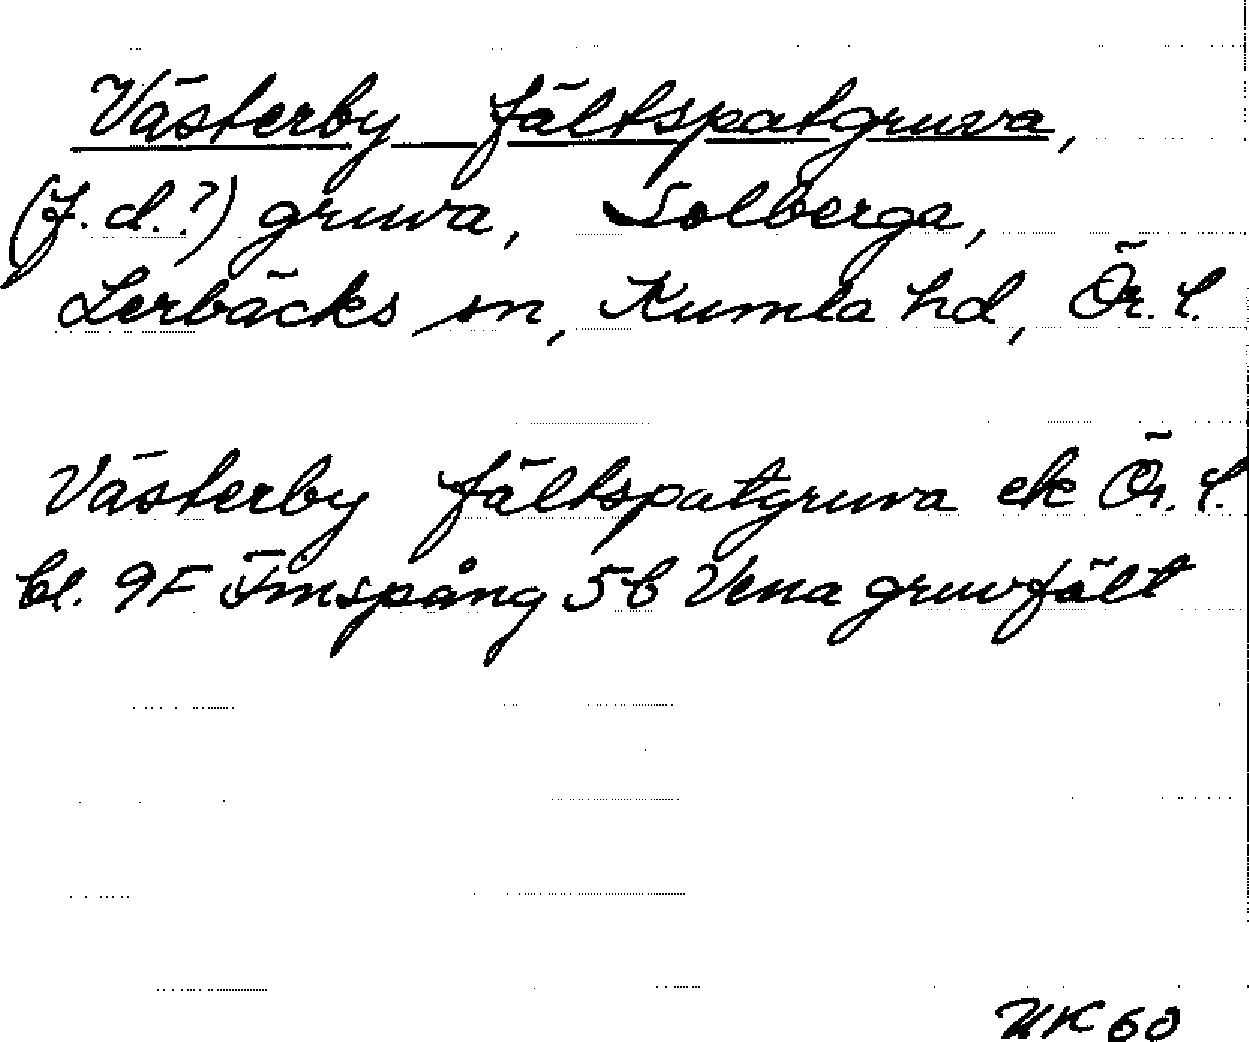 Västerby fältspatgruva,
(f.d.?) gruva, Solberga,
Lerbäcks sn, Kumla hd, Ör. l.
Västerby fältspatgruva ek Ör. l.
bl. 9F Finspång 5b Vena gruvfält
UK 60